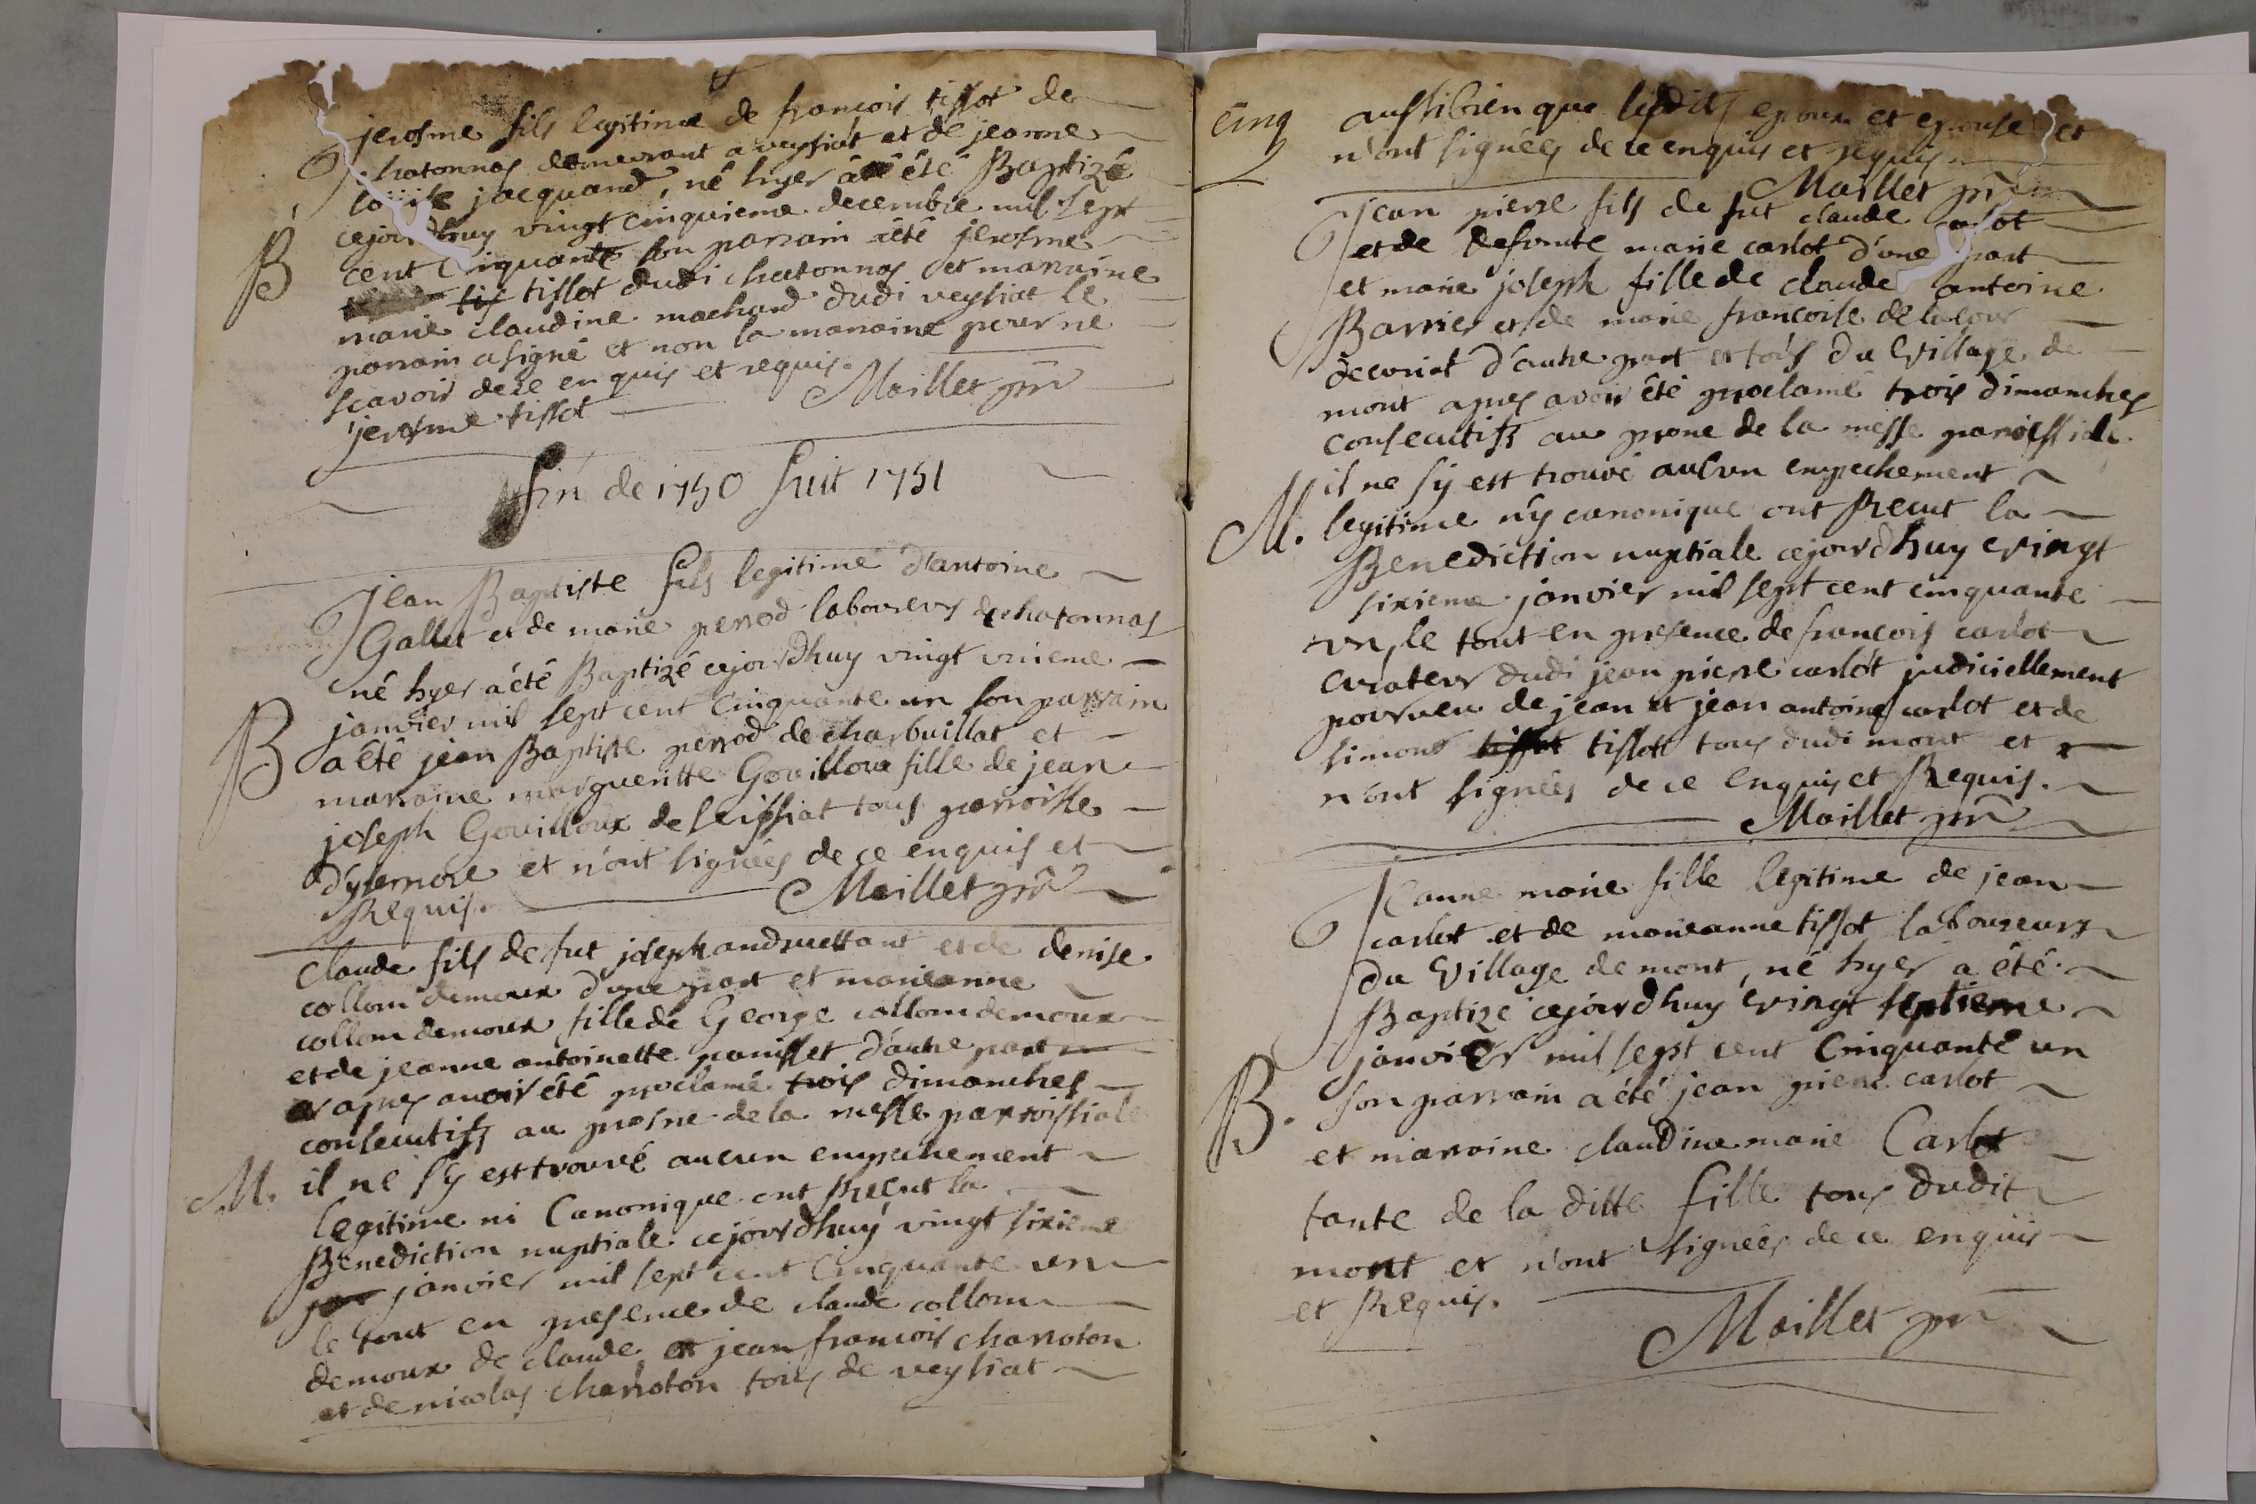 jerosme fils legitime de françois tissot de
chatonnas demeurant a veysiat et de jeanne
loüise jacquand, né hyer a été Baptizé
cejourdhuy vingt cinquieme decembre mil sept
B cent Cinquante son parrain a été jerosme
tis tissot dudi chatonnas et marraine
marie claudine machard dudi veysiat le
parrain a signé et non la marraine pour ne
scavoir de ce en quis et requis.
jerosme tissot Maillet ptre
fin de 1750 suit 1751
Jean Baptiste fils legitime d'antoine
Gallet et de marie perrod laboureurs de chatonnas
né hyer a été Baptizé cejourdhuy vingt unieme
janvier mil sept cent Cinquante un son parrain
B a été jean Baptiste perrod de charbuillat et
marraine margueritte Gouilloux fille de jean
joseph Gouilloux de seissiat tous parroisse
d'ysernore et n'ont signées de ce enquis et
Requis. Maillet ptre
Claude fils de fut joseph andruettant et de denise
collom demoux d'une part et marieanne
collom demoux fille de George collom demoux
et de jeanne antoinette panisset d'autre part
apres avoir été proclamé trois dimanches
consecutifs au prosne de la messe parroissiale
M. il ne s'y est trouvé aucun empechement
legitime ni Canonique ont Reçut la
Benediction nuptiale cejourdhuy vingt sixieme
jan janvier mil sept cent Cinquante un
le tout en presence de claude collom
demoux de claude et jean françois charroton
et de nicolas charroton tous de veysiat
cinq aussibien que lesdits epoux et epouse et
n'ont signées de ce enquis et requis
Maillet ptre
Jean pierre fils de fut claude carlot
et de defunte marie carlot d'une part
et marie joseph fille de claude antoine
Barrier et de marie françoise delacour
decoriat d'autre part et tous du Village de
mont apres avoir été proclamé trois dimanches
consecutifs au prone de la messe paroissiale
il ne s'y est trouvé aucun empechement
M. legitime n'y canonique ont Recut la
Benediction nuptiale cejourdhuy vingt
sixieme janvier mil sept cent cinquante
un, le tout en presence de françois carlot
curateur dudi jean pierre carlot judiciellement
pourveu de jean et jean antoine carlot et de
simond tissot tissot tous dudi mont et
n'ont signées de ce Enquis et Requis.
Maillet ptre
Jeanne marie fille legitime de jean
carlot et de marieanne tissot laboureurs
du Village de mont, né hyer a été
Baptizé cejourdhuy vingt septieme
janvier mil sept cent Cinquante un
B. son parrain a été jean pierre carlot
et marraine claudine marie Carlot
tante de la ditte fille tous dudit
mont et n'ont signées de ce enquis
et Requis.
Maillet ptre